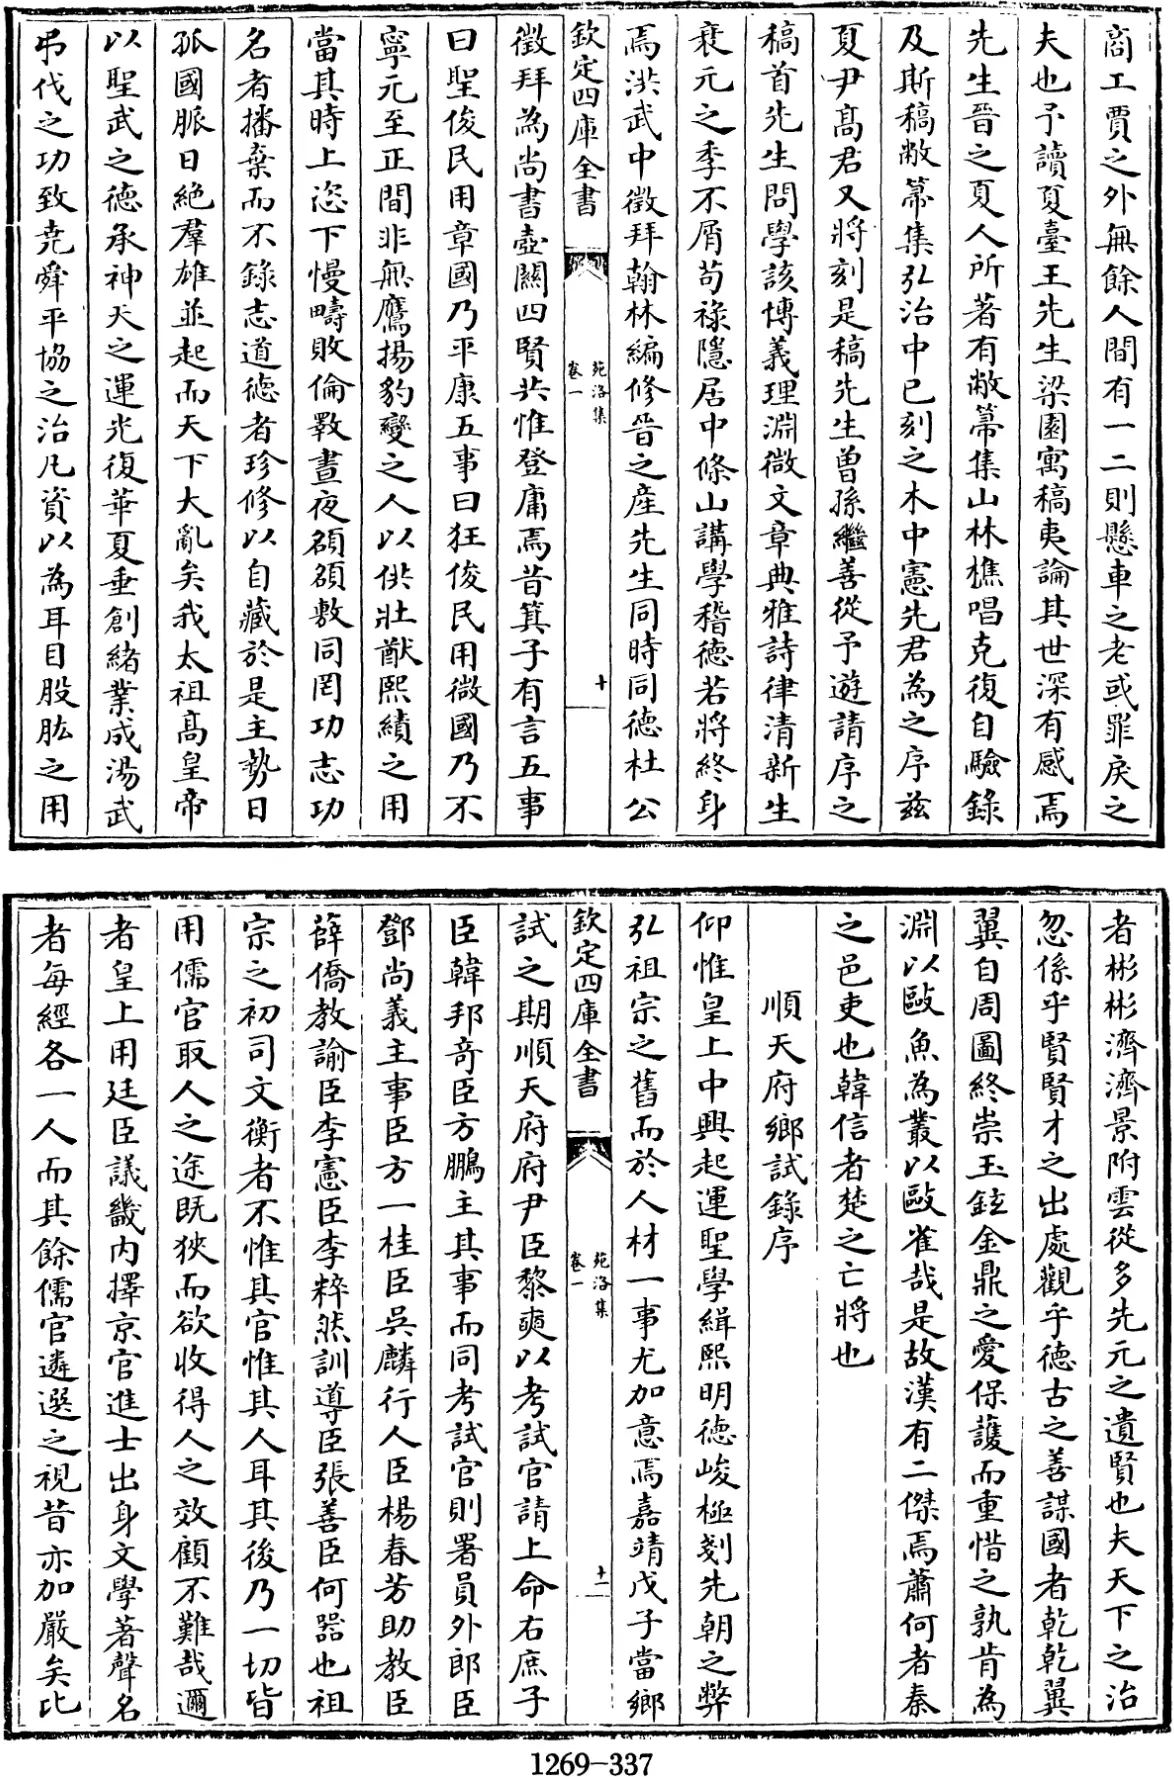 商工賈之外無餘人間有一二則懸車之老或罪戾之
夫也予讀夏臺王先生梁園寓稿夷論其世深有感焉
先生晉之夏人所著有敝帚集山林樵唱克復自驗錄
及斯稿敝帚集弘治中已刻之木中憲先君為之序兹
夏尹髙君又將刻是稿先生曽孫繼善從予遊請序之
稿首先生問學該博義理淵微文章典雅詩律清新生
衰元之季不屑苟祿隱居中條山講學稽徳若將終身
焉洪武中徴拜翰林編修晉之産先生同時同徳杜公
欽定四庫全書
苑洛集
卷一
十
徵拜為尚書壺闗四賢共惟登庸焉昔箕子有言五事
曰聖俊民用章國乃平康五事曰狂俊民用微國乃不
寧元至正間非無鷹揚豹變之人以供壯猷熙績之用
當其時上恣下慢疇敗倫斁晝夜頟頟敷同罔功志功
名者播棄而不錄志道徳者珍修以自藏於是主勢日
孤國脈日絶羣雄並起而天下大亂矣我太祖髙皇帝
以聖武之徳承神天之運光復華夏垂創緒業成湯武
弔伐之功致堯舜平協之治凡資以為耳目股肱之用
者彬彬濟濟景附雲從多先元之遺賢也夫天下之治
忽係乎賢賢才之出處觀乎徳古之善謀國者乾乾翼
翼自周圖終崇玉鉉金鼎之愛保護而重惜之孰肯為
淵以敺魚為叢以敺雀哉是故漢有二傑焉蕭何者秦
之邑吏也韓信者楚之亡將也
順天府鄉試錄序
仰惟皇上中興起運聖學緝熙明徳峻極剗先朝之弊
弘祖宗之舊而於人材一事尤加意焉嘉靖戊子當鄉
欽定四庫全書
苑洛集
卷一
十一
試之期順天府府尹臣黎奭以考試官請上命右庶子
臣韓邦竒臣方鵬主其事而同考試官則署員外郎臣
鄧尚義主事臣方一桂臣吳麟行人臣楊春芳助教臣
薛僑教諭臣李憲臣李粹然訓導臣張善臣何噐也祖
宗之初司文衡者不惟其官惟其人耳其後乃一切皆
用儒官取人之途既狹而欲收得人之效顧不難哉邇
者皇上用廷臣議畿内擇京官進士出身文學著聲名
者每經各一人而其餘儒官遴選之視昔亦加嚴矣比
1269-337